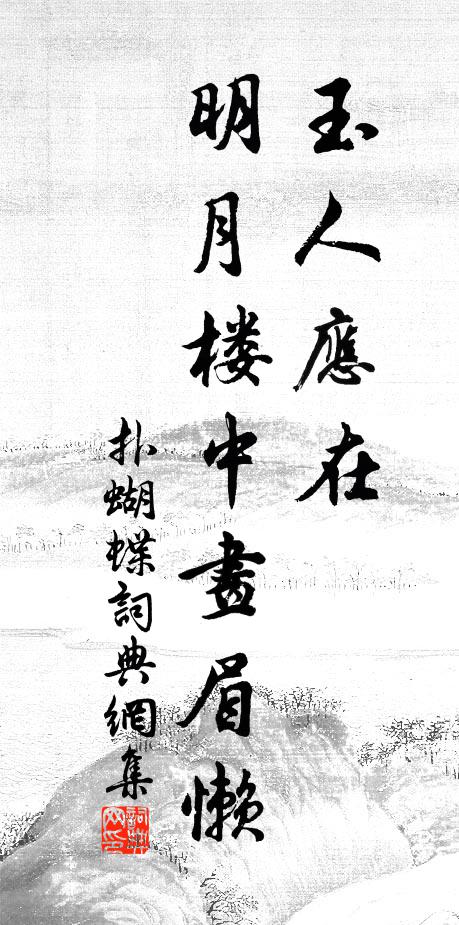 玉人應在
明月楼中畫眉懶
扑蝴蝶詞典網集